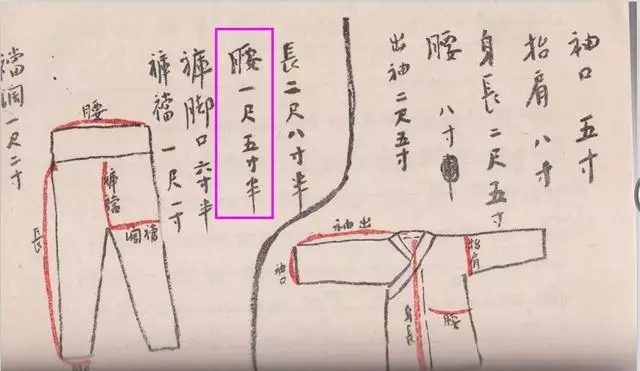 袖口 五寸
抬肩 八寸
身長 二尺五寸
腰 八寸
出袖 二尺五寸
長 二尺八寸半
腰 一尺五寸半
褲脚口 六寸半
褲襠 一尺一寸
襠濶一尺二寸
腰
褲襠
濶襠
長
袖出
袖口
抬肩
身長
腰